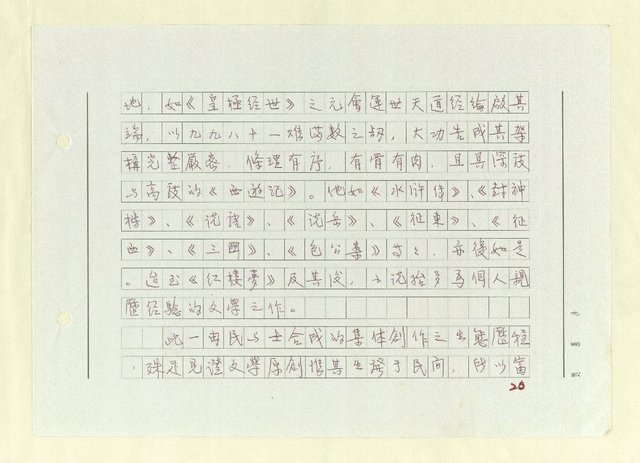 地,如《皇極经世》之元會運世天道经綸啟其
端,以九九八十一难满數之劫,大功告成其架
構完整嚴密,條理有序,有骨有肉,且具深度
与高度的《西遊記》。他如《水浒传》、《封神
榜》、《说唐》、《说岳》、《征東》、《征
西》、《三國》、《包公案》等等,亦復如是
。迨至《红樓夢》及其後,小说始多為個人親
歷经驗的文學之作。
此一由民与士合成的集体創作之生態歷程
,殊足見證文學原創惟其生發于民间,所以富
20